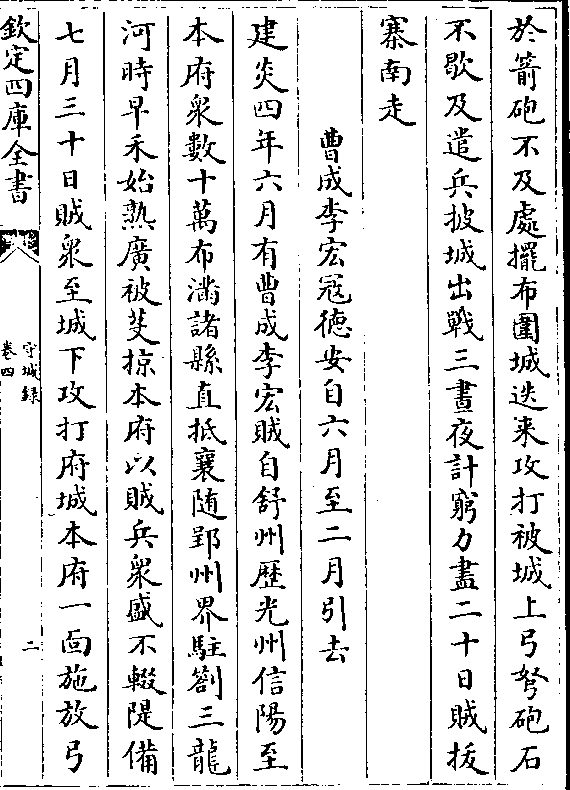 於箭砲不及處擺布圍城迭来攻打被城上弓弩砲石
不歇及遣兵披城出戰三晝夜計窮力盡二十日賊拔
寨南走
曹成李宏冦德安自六月至二月引去
建炎四年六月有曹成李宏賊自舒州歴光州信陽至
本府衆數十萬布滿諸縣直抵襄随郢州界駐劄三龍
河時早禾始熟廣被芟掠本府以賊兵衆盛不輟隄備
七月三十日賊衆至城下攻打府城本府一面施放弓
欽定四庫全書
守城録
卷四
二